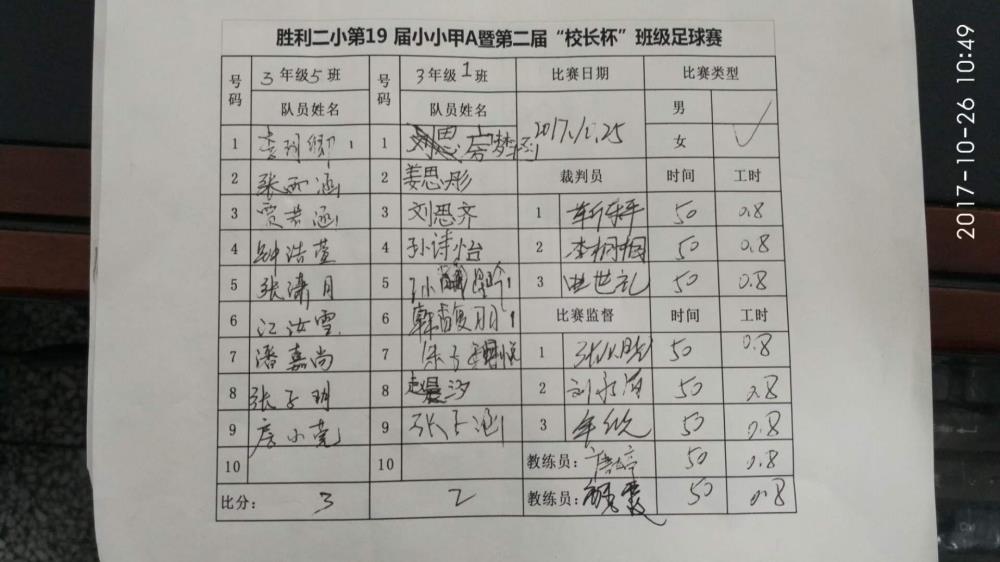 胜利二小第19 届小小甲A暨第二届“校长杯”班级足球赛
号码 3年级5班 号码 3年级1班 比赛日期 比赛类型
队员姓名 队员姓名 男
1 1 女
2 张雨涵 2 姜思彤 裁判员 时间 工时
3 贾若涵 3 刘思齐 1 50 0.8
4 钟浩萱 4 孙诗怡 2 50 0.8
5 张潇月 5 3 曲世礼 50 0.8
6 江汝雪 6 比赛监督 时间 工时
7 潘嘉尚 7 1 50 0.8
8 张子玥 8 赵晨汐 2 刘永海 50 0.8
9 房小莞 9 张子涵 3 50 0.8
10 10 教练员: 50 0.8
比分: 3 2 教练员: 50 0.8
2017-10-26 10:49